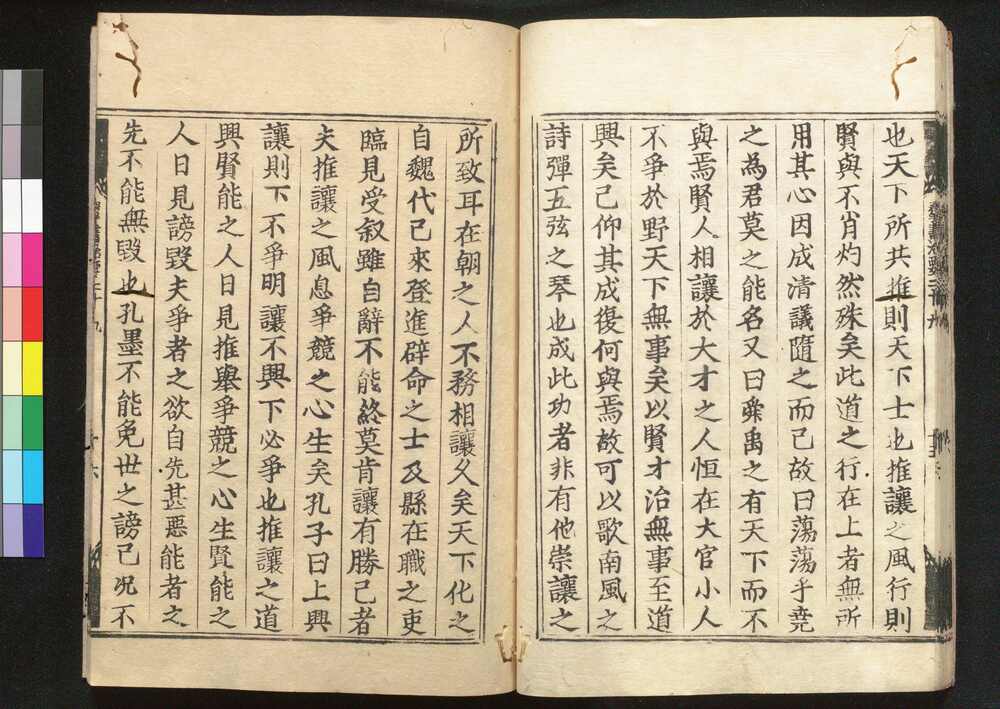 也天下所共推則天下士也推讓之風行則
賢與不肖灼然殊矣此道之行在上者無所
用其心因成清議隨之而已故曰蕩蕩乎堯
之為君莫之能名又曰舜禹之有天下而不
與焉賢人相讓於大才之人恒在大官小人
不爭於野天下無事矣以賢才治無事至道
興矣己仰其成復何與焉故可以歌南風之
詩彈五弦之琴也成此功者非有他崇讓之
所致耳在朝之人不務相讓久矣天下化之
自魏代已來登進辟命之士及縣在職之吏
臨見受叙雖自辭不能終莫肯讓有勝己者
夫推讓之風息爭競之心生矣孔子曰上興
讓則下不爭明讓不興下必爭也推讓之道
興賢能之人日見推舉爭競之心生賢能之
人日見謗毀夫爭者之欲自先甚惡能者之
先不能無毀也孔墨不能免世之謗己况不